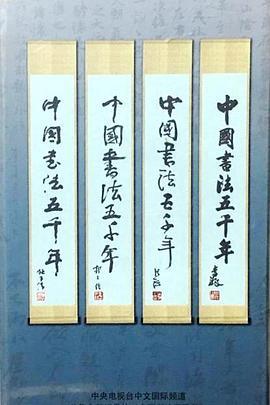 中國書法五千年
中國書法五千年
中國書法五千年
中国书法五千年
中央电视台中文国际频道